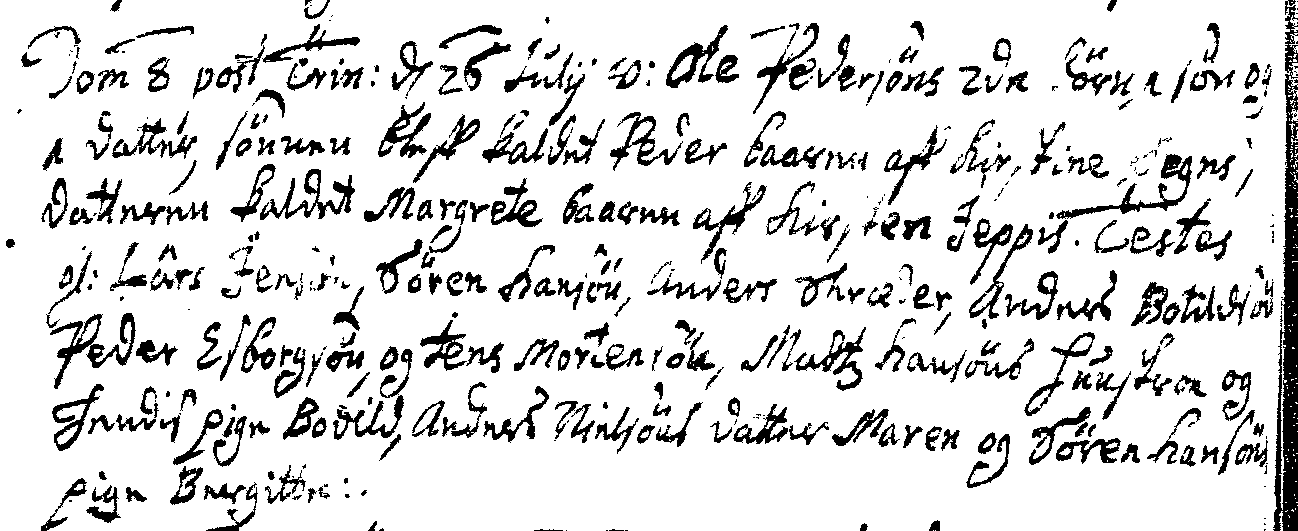 Dom 8 post Trin: d 26 Julij D: Ole Pedersöns 2de börn 1 sön og
1 datter, sönnen bleff kaldet Peder baaren aff Kirstine Jegns,
datteren kaldet Margrete baaren aff Kirsten Jeppis. Testes
Lars Jensön, Sören Hansön, Anders Skræder, Anders Botildsön
Peder Esborgsön, og Jens Mortensön, Madtz Hansöns Huustroe og
pige Bodild, Anders Nielsöns datter Maren og Sören Hansöns
pige Bergitte:.